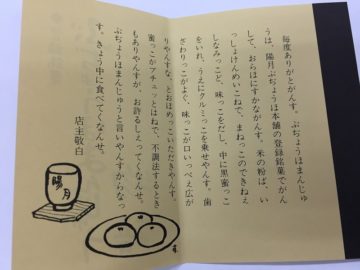 毎度ありがとがんす。ぶぢょうほまんじゅ
うは、陽月ぶぢょうほ本舗の登録銘菓でがん
して、おらほにすかながんす。米の粉ば、い
っしょけんめいこねで、まねっこのできねえ
しなみっこと、味っこをだし、中に黒蜜っこ
をいれ、うえにクルミっこを乗せやんす。歯
ざわりっこがよぐ、味っこが口いっぺえ広が
りやんすな、とおほめっこいただきやんす。
蜜っこがプチュッとはねで、不調法するとき
もありやんすが、お許るしぇってくなんせ。
ぶぢょうほまんじゅうと言いやんすからなっ
す。きょう中に食べてくなんせ。
店主敬白
陽月